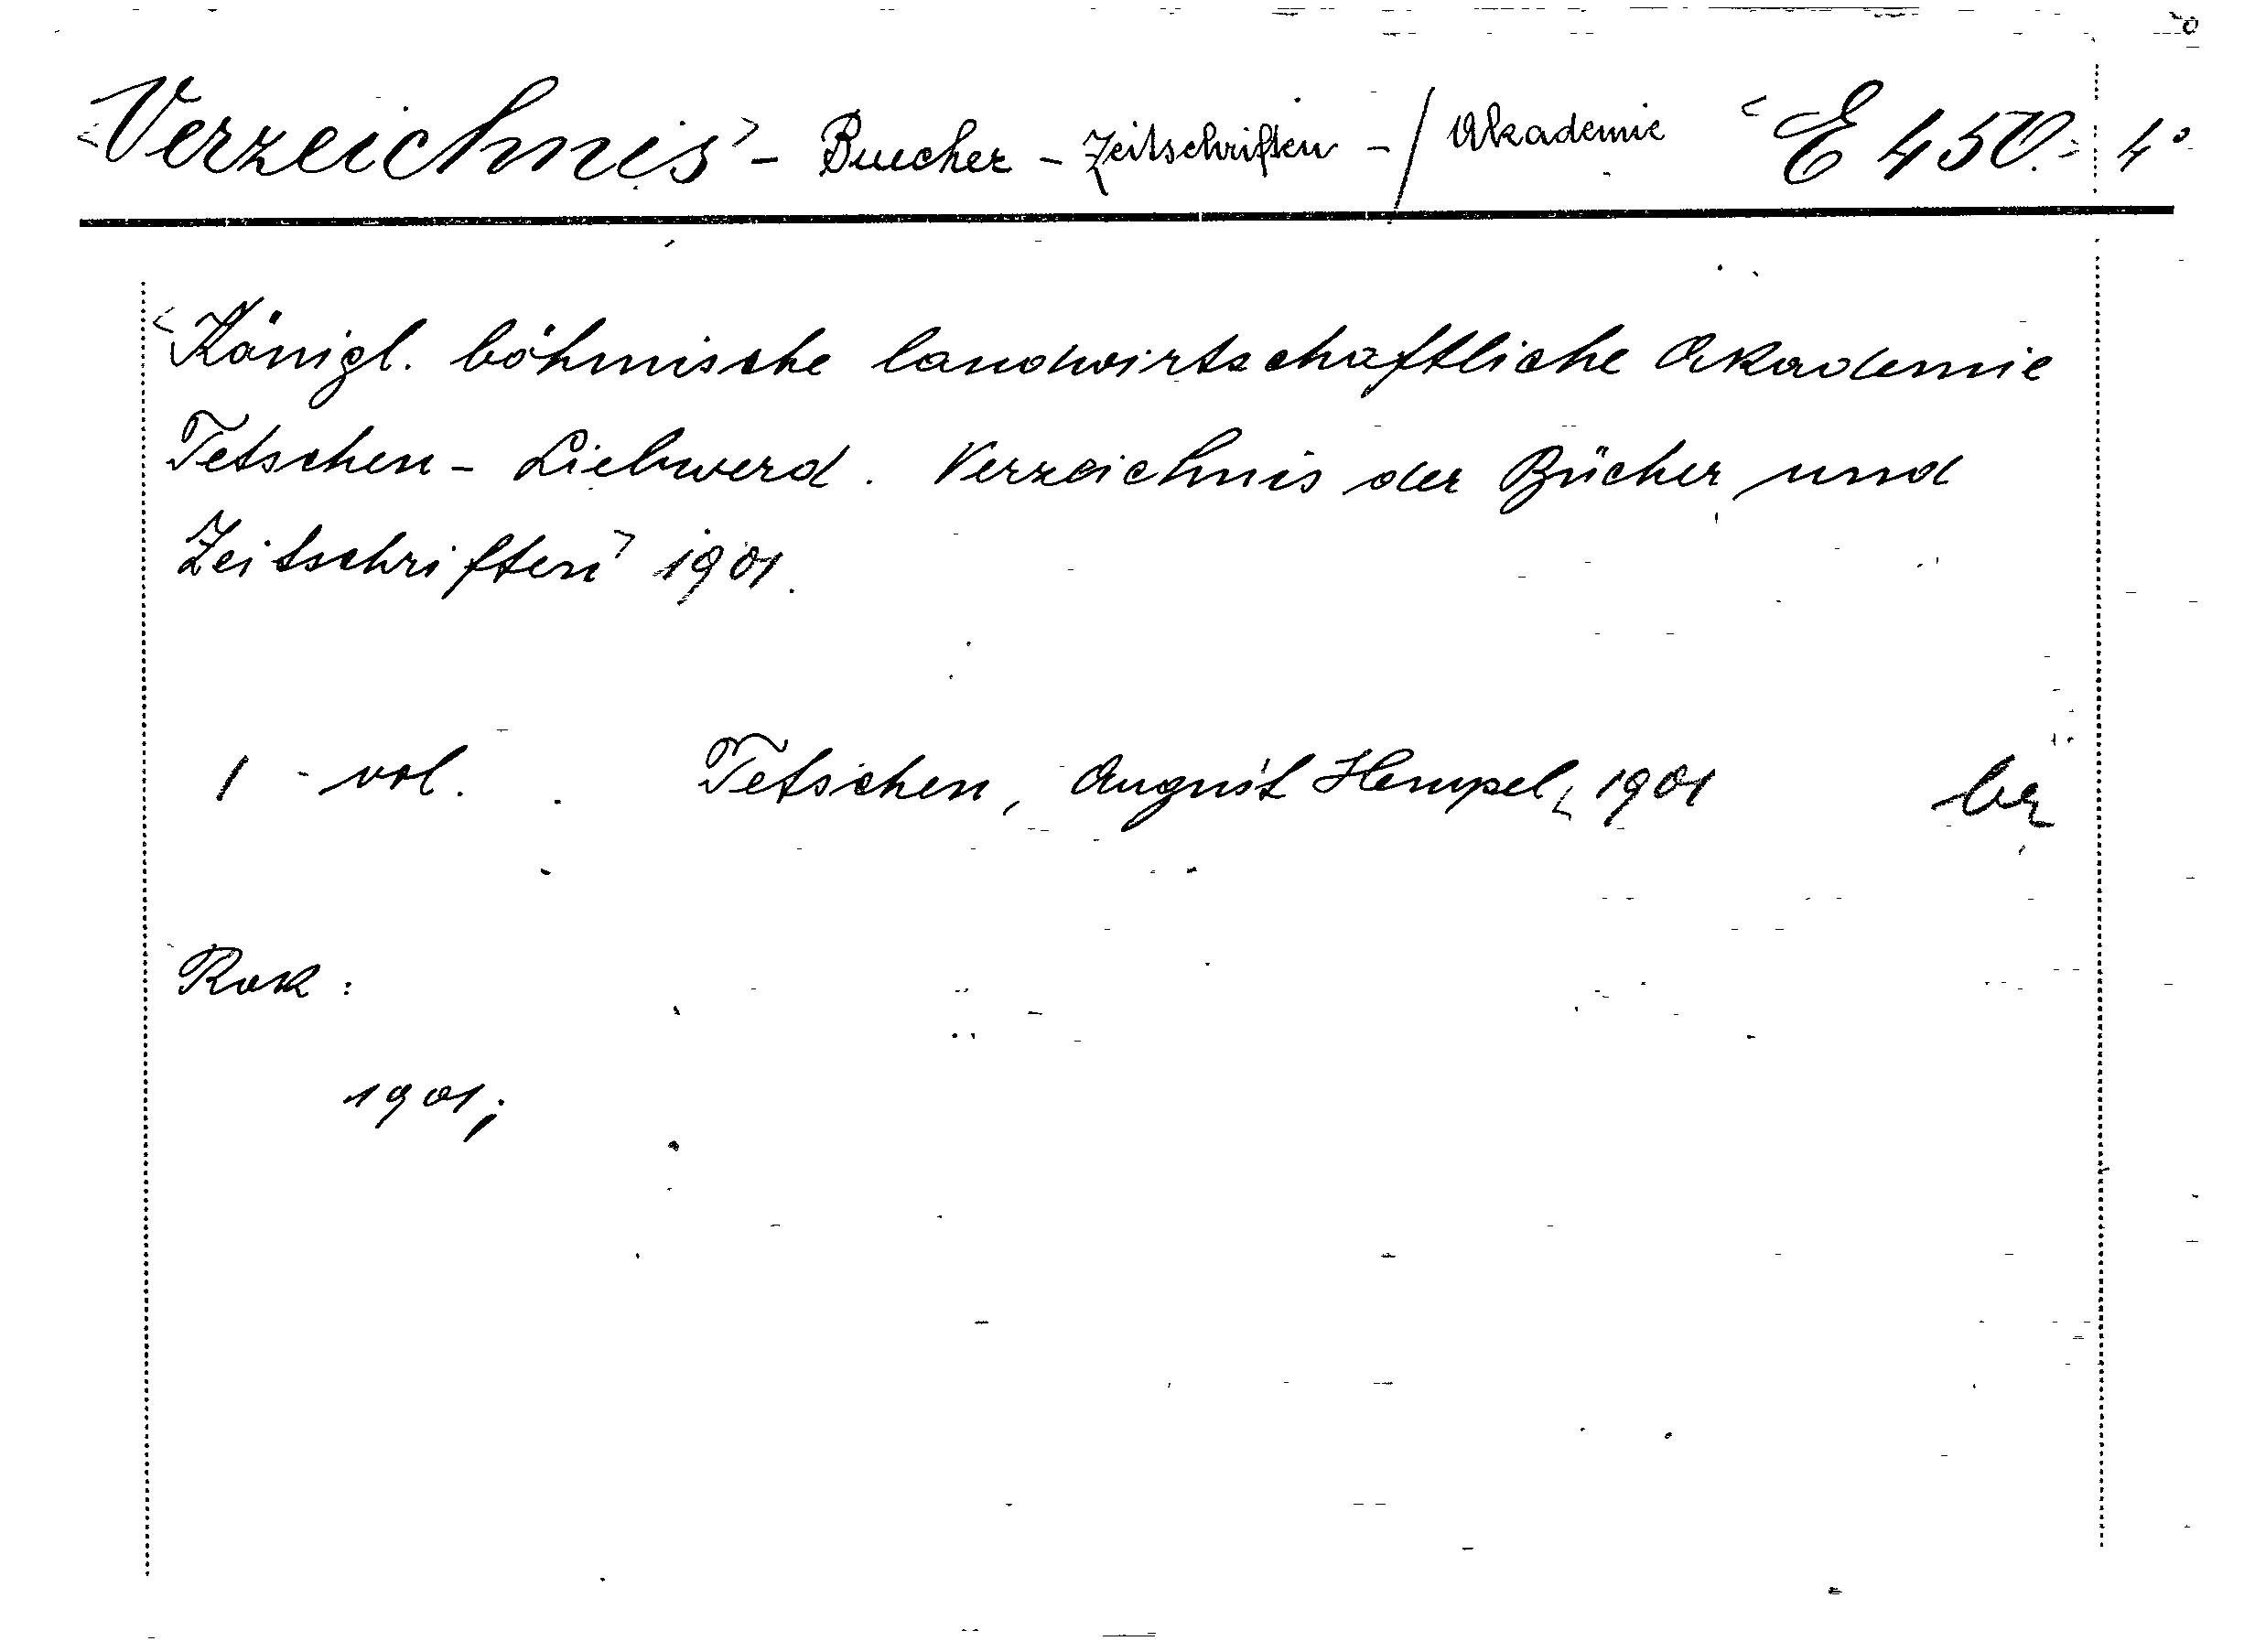 <Verzeichnis> - Buecher - Zeitschriften - / Akademie <E 450.> 4°
<Königl. böhmische landwirtschaftliche Akademie
Tetschen - Liebwerd. Verzeichnis der Bücher und
Zeitschriften> 1901.
1 - vol. Tetschen, August Hempel, 1901
Rok:
1901;